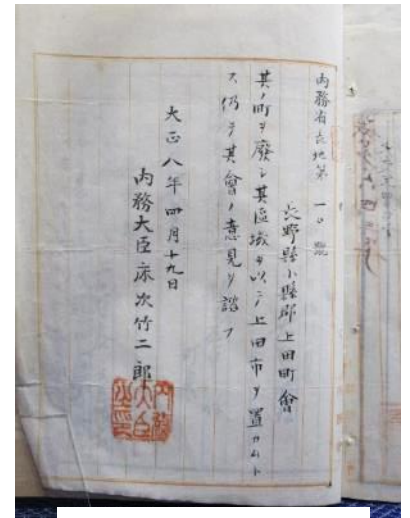 內務省長地第一〇號
長野縣小縣郡上田町會
其ノ町ヲ廢シ其區域ヲ以テ上田市ヲ置カムト
ス仍テ其會ノ意見ヲ諮フ
大正八年四月十九日
內務大臣床次竹二郎